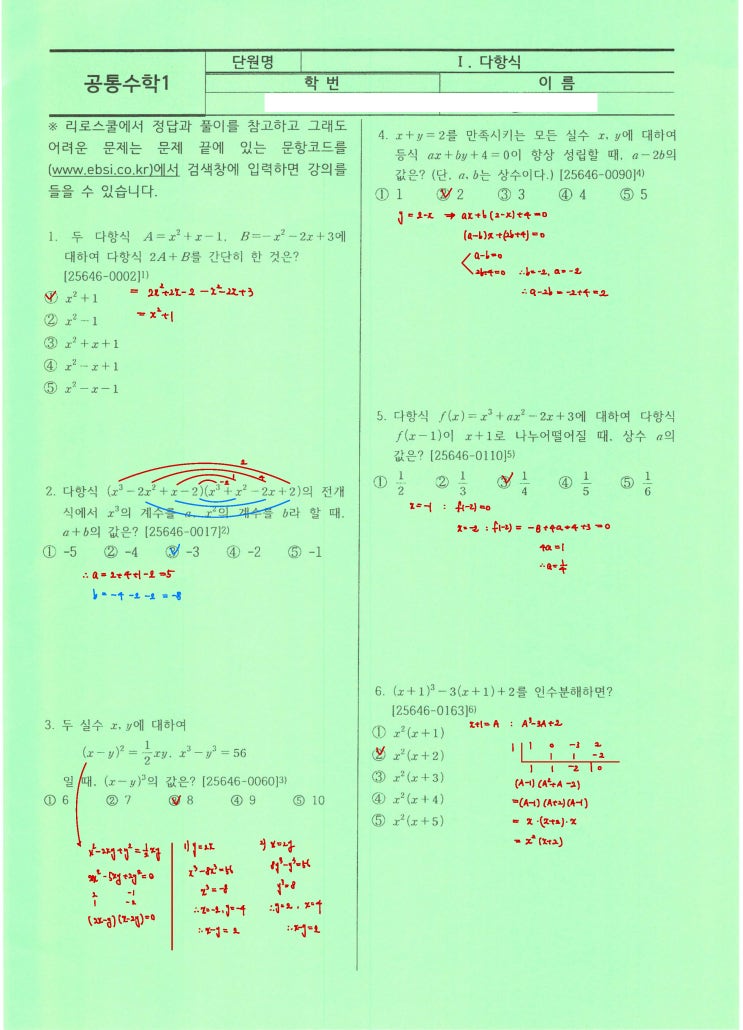 공통수학1
단원명
Ⅰ. 다항식
학 번
이 름
※ 리로스쿨에서 정답과 풀이를 참고하고 그래도
어려운 문제는 문제 끝에 있는 문항코드를
(www.ebsi.co.kr)에서 검색창에 입력하면 강의를
들을 수 있습니다.
1. 두 다항식 A=x²+x-1, B=-x²-2x+3에
대하여 다항식 2A+B를 간단히 한 것은?
[25646-0002]1)
① x²+1
= 2x²+2x-2 -x²-2x+3
= x²+1
② x²-1
③ x²+x+1
④ x²-x+1
⑤ x²-x-1
2
4
1
-2
2. 다항식 (x³-2x²+x-2)(x³+x²-2x+2)의 전개
식에서 x³의 계수를 a, x²의 계수를 b라 할 때,
a+b의 값은? [25646-0017]2)
① -5 ② -4 ③ -3 ④ -2 ⑤ -1
∴ a = 2+4+1-2 = 5
b = -4-2-2 = -8
3. 두 실수 x, y에 대하여
(x-y)²=1/2xy, x³-y³=56
일 때, (x-y)³의 값은? [25646-0060]3)
① 6 ② 7 ③ 8 ④ 9 ⑤ 10
x²-2xy+y²=½xy
2x²-5xy+2y²=0
2 -1
1 -2
(2x-y)(x-2y)=0
1) y=2x
x³-8x³=56
x³=-8
∴x=-2, y=-4
∴x-y=2
2) x=2y
8y³-y³=56
y³=8
∴y=2, x=4
∴x-y=2
4. x+y=2를 만족시키는 모든 실수 x, y에 대하여
등식 ax+by+4=0이 항상 성립할 때, a-2b의
값은? (단, a, b는 상수이다.) [25646-0090]4)
① 1 ② 2 ③ 3 ④ 4 ⑤ 5
y=2-x ⇒ ax+b(2-x)+4=0
(a-b)x+(2b+4)=0
a-b=0
2b+4=0 ∴b=-2, a=-2
∴a-2b=-2+4=2
5. 다항식 f(x)=x³+ax²-2x+3에 대하여 다항식
f(x-1)이 x+1로 나누어떨어질 때, 상수 a의
값은? [25646-0110]5)
① 1/2 ② 1/3 ③ 1/4 ④ 1/5 ⑤ 1/6
x=-1 : f(-2)=0
x=-2 : f(-2)=-8+4a+4+3=0
4a=1
∴a=¼
6. (x+1)³-3(x+1)+2를 인수분해하면?
[25646-0163]6)
x+1=A : A³-3A+2
① x²(x+1)
② x²(x+2)
③ x²(x+3)
④ x²(x+4)
⑤ x²(x+5)
1 1 0 -3 2
1 1 -2
1 1 -2 0
(A-1)(A²+A-2)
=(A-1)(A+2)(A-1)
= x·(x+3)·x
= x²(x+3)